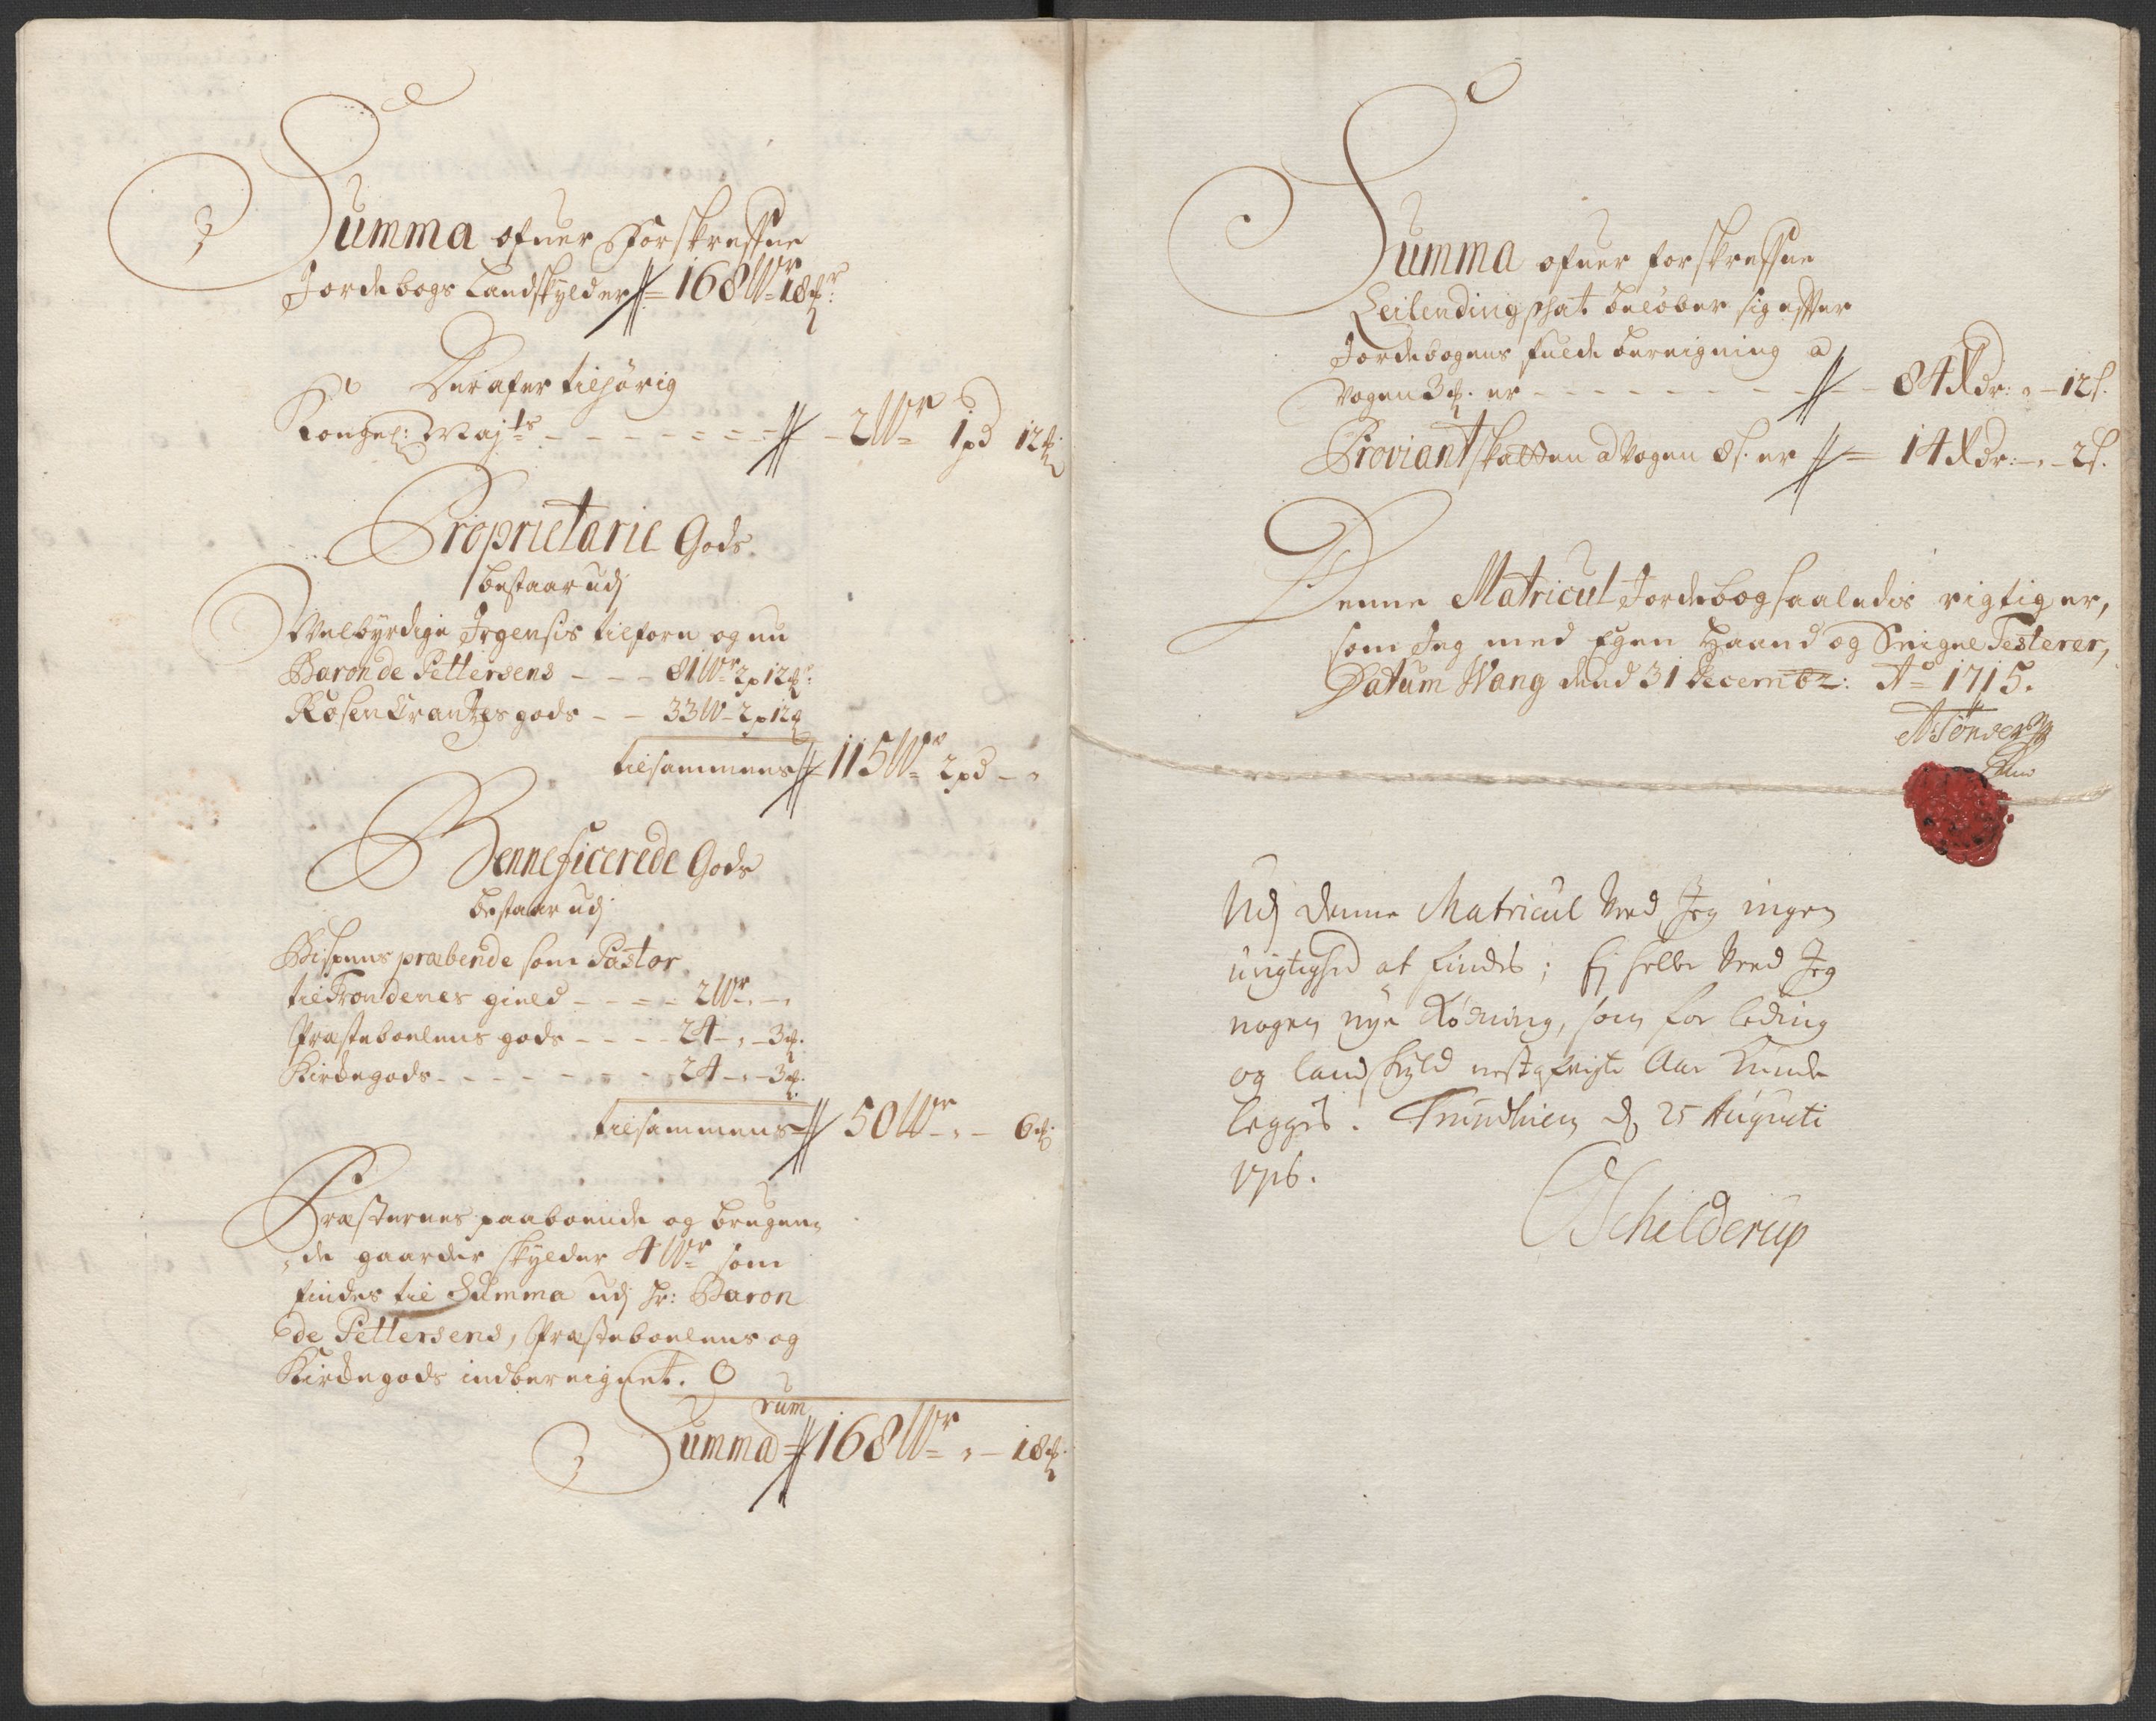 Summa ofuer Forskrefne
Jordebogs Landskylder 168 W^r 18 ℔:
Der af er tilhörig
Kongel: Maj^ts - - - - - - - 2 W^r 1 pd 12 ℔:
Proprietarie Gods
bestaar udj
Welbyrdige Irgensis tilforn og nu
Baron de Pettersens - - - 81 W^r 2 p 12 ℔:
Rosenkrantzes gods - - 33 W - 2 p 12 ℔
tilsammens 115 W^r 2 pd - "
Benneficerede Gods
bestaar udj
Bispens præbende som Pastor
til Trondenes gield - - - - 2 W^r " - "
Præsteboelens gods - - - - 24 - " - 3 ℔.
Kirkegods - - - - - - - 24 - " - 3 ℔.
tilsammens 50 W^r - " - 6 ℔:
Præsternes paaboende og brugen-
de gaarder skylder 4 W^r som
findes til Summa udj Hr: Baron
de Pettersens, Præsteboelens og
Kirkegods indbereignet.
Summarum 168 W^r " - 18 ℔:
Summa ofuer forskrefne
Leilending skat beløber sig efter
Jordebogens fulde bereigning a
Vogen 3 ℔. er - - - - - - - 84 Rdr: " - 12 s.
Proviantskatten a Vogen 8 s. er 14 Rdr: - " - 2 s.
Denne Matricul Jordebog saaledis rigtig er,
som Jeg med Egen Haand og Seigne Testerer,
Datum Wang dend 31 Decembr: A^o 1715.
A Tønder
Udj denne Matricul Veed Jeg ingen
urigtighed at findes; Ej heller Veed Jeg
nogen nye Rødning, som for leding
og landskyld nestafvigte Aar kunde
leggis. Trundhiem d. 25 Augusti
1716.
Schelderup